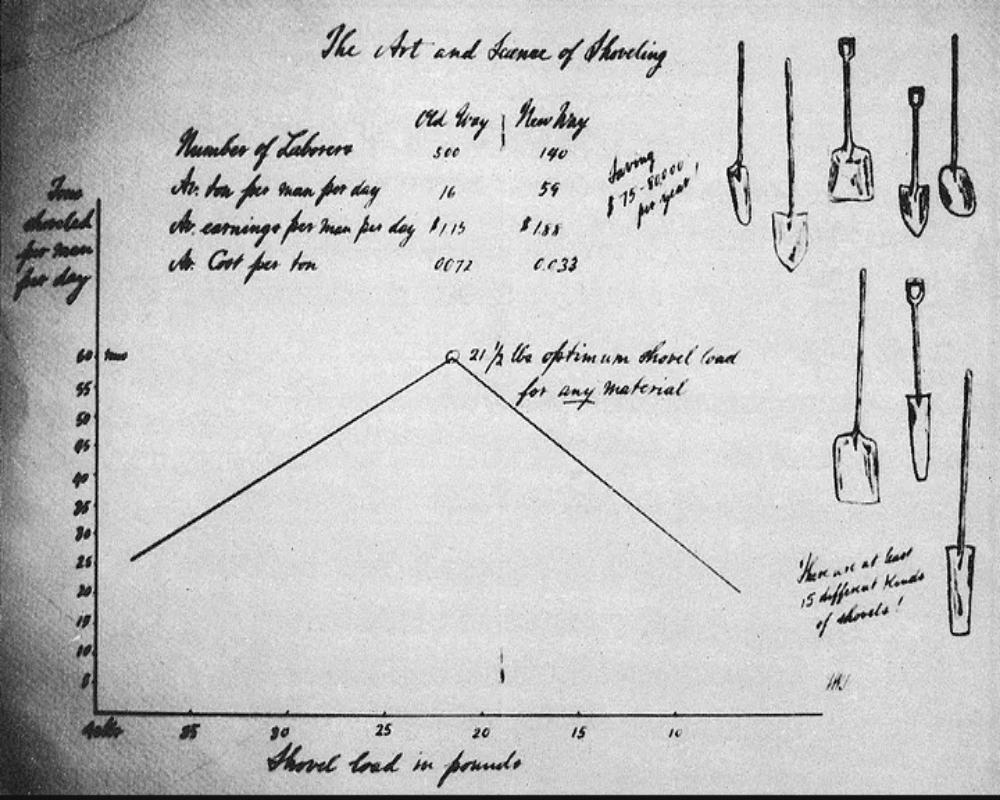 The Art and Science of Shoveling
Old Way New Way
Number of Laborers 500 140
Av. ton per man per day 16 59
Av. earnings per man per day $1.15 $1.88
Av. Cost per ton 0.072 0.033
Saving
$ 75-80,000
per year!
Tons
shoveled
per man
per day
60 tons
21 1/2 lbs optimum shovel load
for any material
55
50
45
40
35
30
25
20
15
10
5
There are at least
15 different kinds
of shovels!
40 lbs 35 30 25 20 15 10
Shovel load in pounds